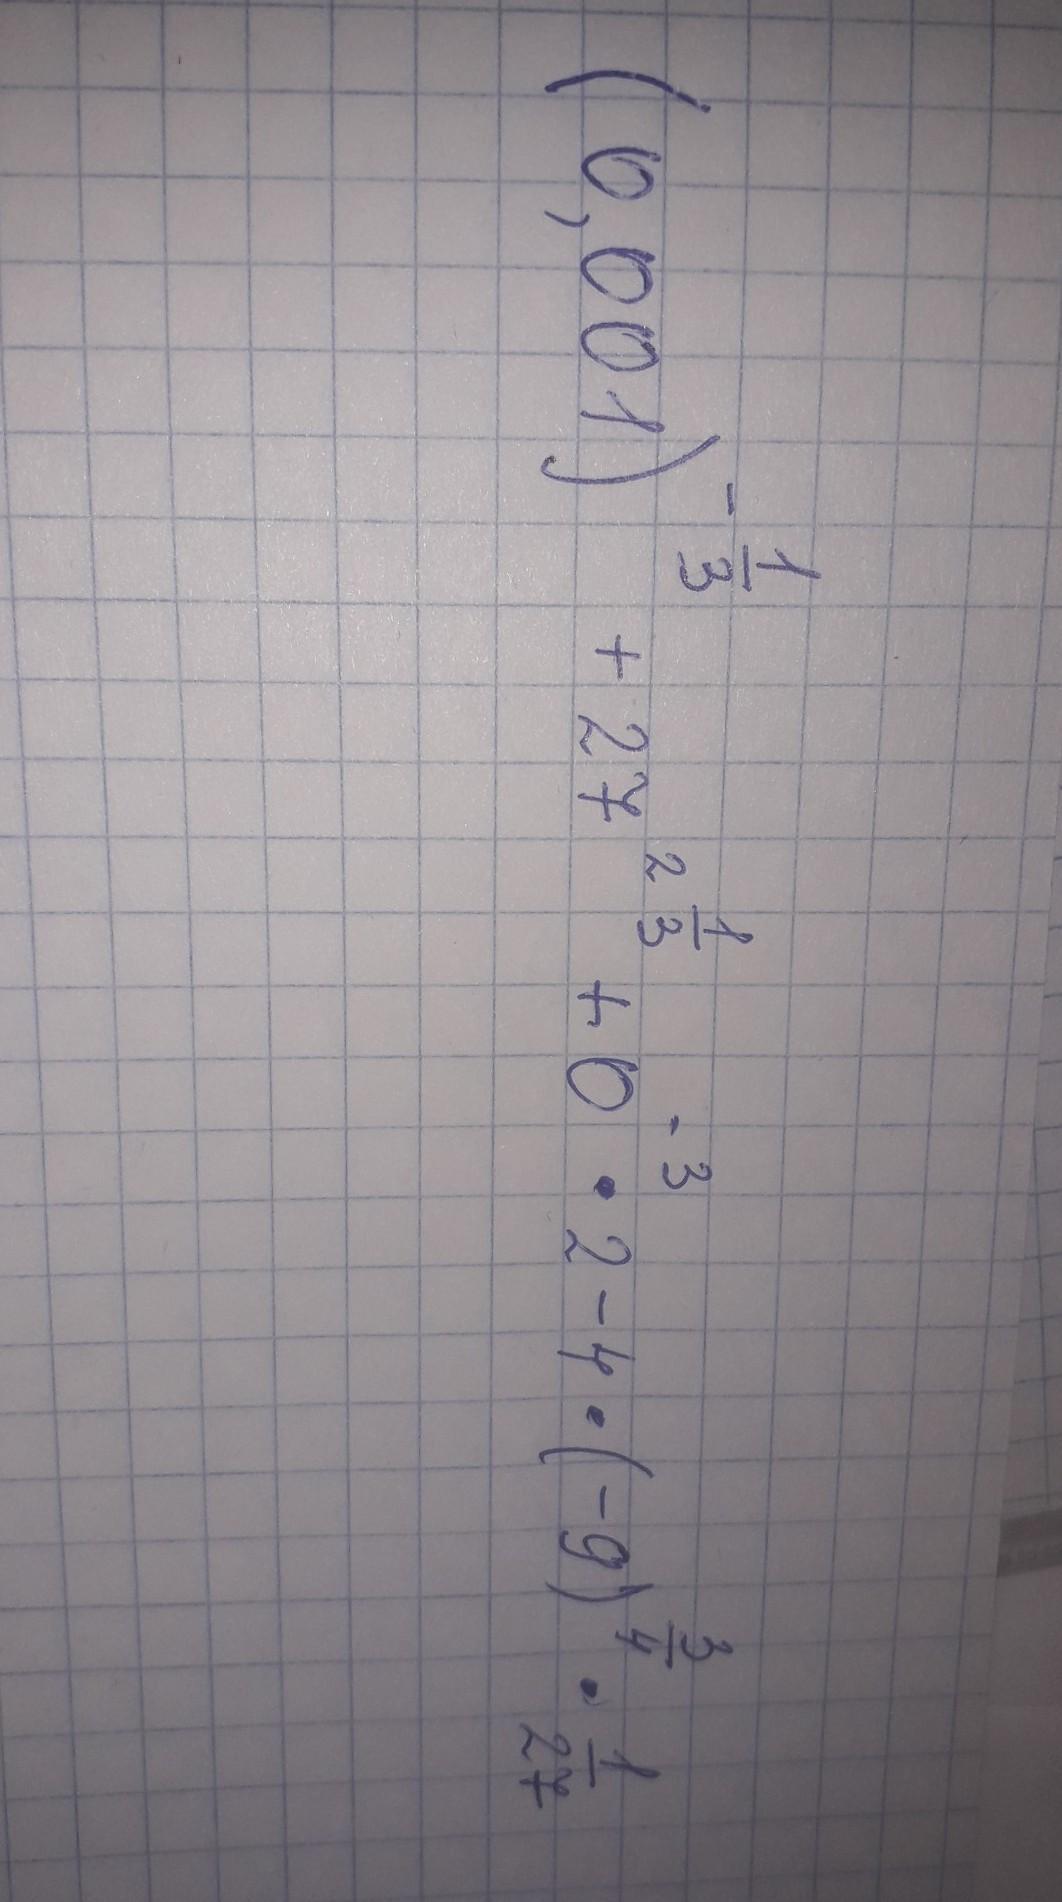 (0,001)^{-\frac{1}{3}} + 27^{2\frac{1}{3}} + 0^{-3} · 2 - 4 · (-9)^{\frac{3}{4}} · \frac{1}{27}